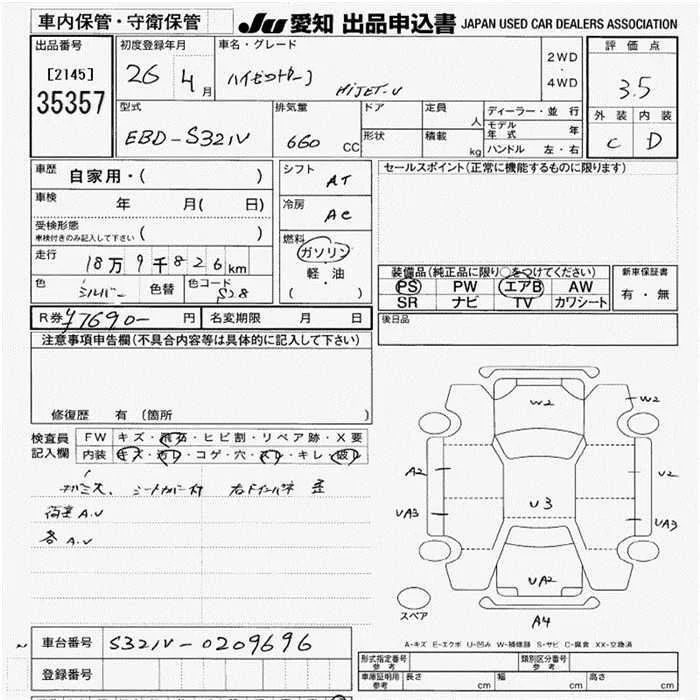 車内保管・守衛保管 JU 愛知 出品申込書 JAPAN USED CAR DEALERS ASSOCIATION
出品番号 初度登録年月 車名・グレード 評価点
[2145] 26年 4月 ハイゼットカーゴ HiJET-V 2WD・4WD 3.5
35357
型式 排気量 ドア 定員 人 ディーラー・並行 外装 内装
EBD-S321V 660 CC 形状 積載 kg モデル年式 年 C D
ハンドル 左・右
車歴 自家用・( ) シフト AT セールスポイント(正常に機能するものに限ります)
車検 年 月( 日) 冷房 AC
受検形態
車検付きのみ記入して下さい ( ) 燃料 ガソリン
走行 18万9千826km 軽・油 装備品(純正品に限り○をつけてください) 新車保証書
色 シルバー 色替 色コード S28 ( ) PS PW エアB AW 有・無
SR ナビ TV カワシート
R券 ¥7690- 円 名変期限 月 日 後日品
注意事項申告欄(不具合内容等は具体的に記入して下さい)
修復歴 有(箇所 )
検査員 FW キズ・飛石・ヒビ割・リペア跡・X要
記入欄 内装 キズ・汚レ・コゲ・穴・スレ・キレ・破レ
シートカバー付
A.U
各 A.U
W2
W2
A2
U2
U3
UA3
UA3
UA2
スペア
A4
A-キズ E-エクボ U-凹み W-補修跡 S-サビ C-腐食 XX-交換済
車台番号 S321V-0209696
登録番号
形式指定番号 参考 類別区分番号 参考
車庫証明用 参考 長さ cm 幅 cm 高さ cm